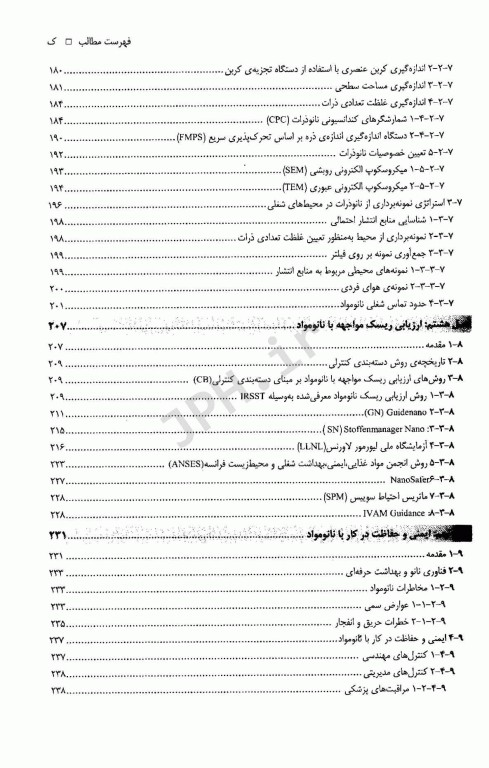 فهرست مطالب □ ک
۷-۲-۲ اندازه‌گیری کربن عنصری با استفاده از دستگاه تجزیه‌ی کربن ۱۸۰
۷-۲-۳ اندازه‌گیری مساحت سطحی ۱۸۱
۷-۲-۴ اندازه‌گیری غلظت تعدادی ذرات ۱۸۴
۷-۲-۴-۱ شمارشگرهای کندانسیونی نانوذرات (CPC) ۱۸۴
۷-۲-۴-۲ دستگاه اندازه‌گیری اندازه‌ی ذره بر اساس تحرک‌پذیری سریع (FMPS) ۱۹۰
۷-۲-۵ تعیین خصوصیات نانوذرات ۱۹۲
۷-۲-۵-۱ میکروسکوپ الکترونی روبشی (SEM) ۱۹۳
۷-۲-۵-۲ میکروسکوپ الکترونی عبوری (TEM) ۱۹۴
۷-۳ استراتژی نمونه‌برداری از نانوذرات در محیط‌های شغلی ۱۹۶
۷-۳-۱ شناسایی منابع انتشار احتمالی ۱۹۸
۷-۳-۲ نمونه‌برداری از محیط به‌منظور تعیین غلظت تعدادی ذرات ۱۹۸
۷-۳-۳ جمع‌آوری نمونه بر روی فیلتر ۱۹۹
۷-۳-۳-۱ نمونه‌های محیطی مربوط به منابع انتشار ۱۹۹
۷-۳-۳-۲ نمونه‌ی هوای فردی ۲۰۰
۷-۳-۴ حدود تماس شغلی نانومواد ۲۰۱
هشتم: ارزیابی ریسک مواجهه با نانومواد ۲۰۷
۸-۱ مقدمه ۲۰۷
۸-۲ تاریخچه‌ی روش دسته‌بندی کنترلی ۲۰۹
۸-۳ روش‌های ارزیابی ریسک مواجهه با نانومواد بر مبنای دسته‌بندی کنترلی(CB) ۲۰۹
۸-۳-۱ روش ارزیابی ریسک نانومواد معرفی‌شده به‌وسیله IRSST ۲۰۹
۸-۳-۲ Guidenano (GN) ۲۱۱
۸-۳-۳: Stoffenmanager Nano (SN) ۲۱۵
۸-۳-۴ آزمایشگاه ملی لیورمور لاورنس(LLNL) ۲۱۶
۸-۳-۵ روش انجمن مواد غذایی،ایمنی،بهداشت شغلی و محیط‌زیست فرانسه(ANSES) ۲۲۳
۸-۳-۶ NanoSafer ۲۲۷
۸-۳-۷ ماتریس احتیاط سوییس (SPM) ۲۲۸
۸-۳-۸: IVAM Guidance ۲۲۸
ایمنی و حفاظت در کار با نانومواد ۲۳۱
۹-۱ مقدمه ۲۳۱
۹-۲ فناوری نانو و بهداشت حرفه‌ای ۲۳۳
۹-۲-۱ مخاطرات نانومواد ۲۳۳
۹-۲-۱-۱ عوارض سمی ۲۳۳
۹-۲-۱-۲ خطرات حریق و انفجار ۲۳۵
۹-۴ ایمنی و حفاظت در کار با نانومواد ۲۳۷
۹-۴-۱ کنترل‌های مهندسی ۲۳۷
۹-۴-۲ کنترل‌های مدیریتی ۲۳۸
۹-۴-۲-۱ مراقبت‌های پزشکی ۲۳۸
JPH.ir